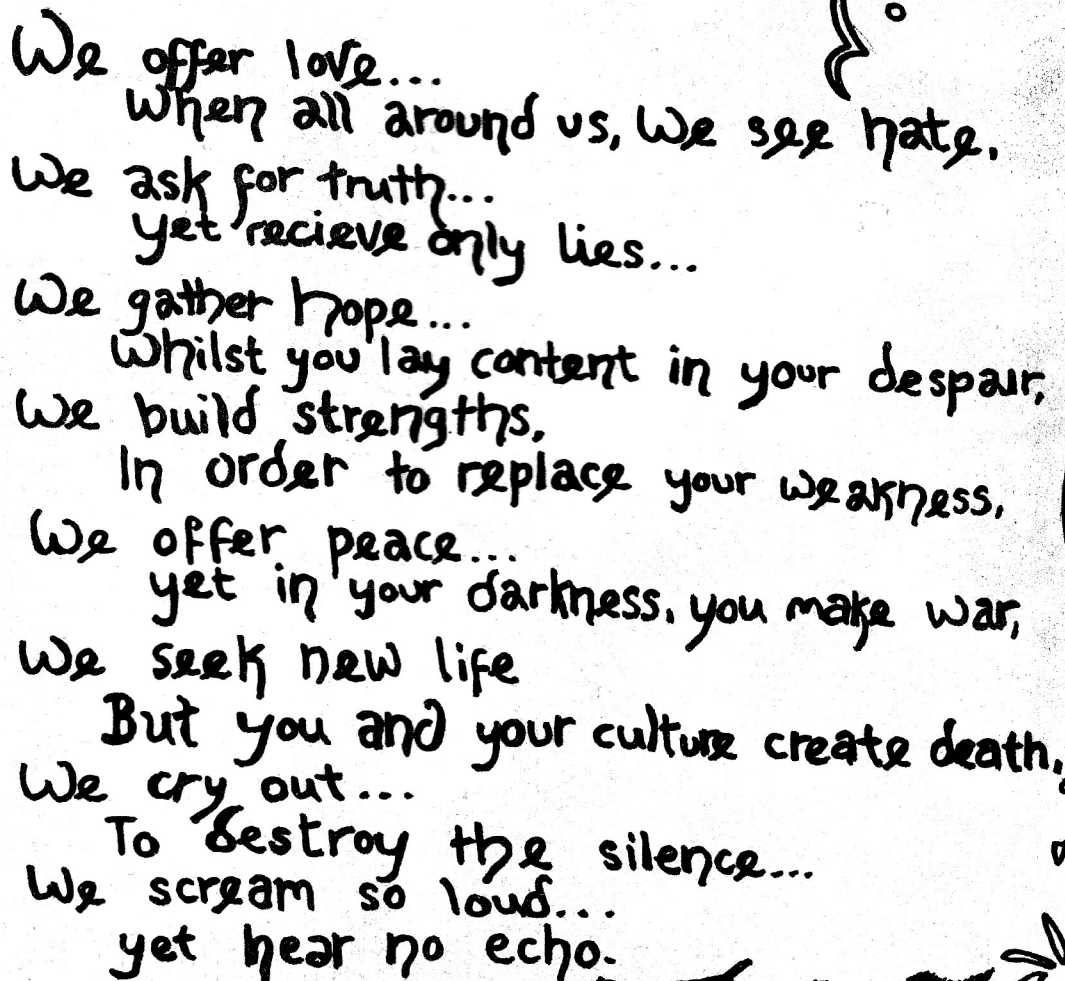 We offer love...
when all around us, we see hate.
We ask for truth...
yet recieve only lies...
We gather hope...
Whilst you lay content in your despair,
We build strengths,
In order to replace your weakness,
We offer peace...
yet in your darkness, you make war,
We seek new life
But you and your culture create death,
We cry out...
To destroy the silence...
We scream so loud...
yet hear no echo.